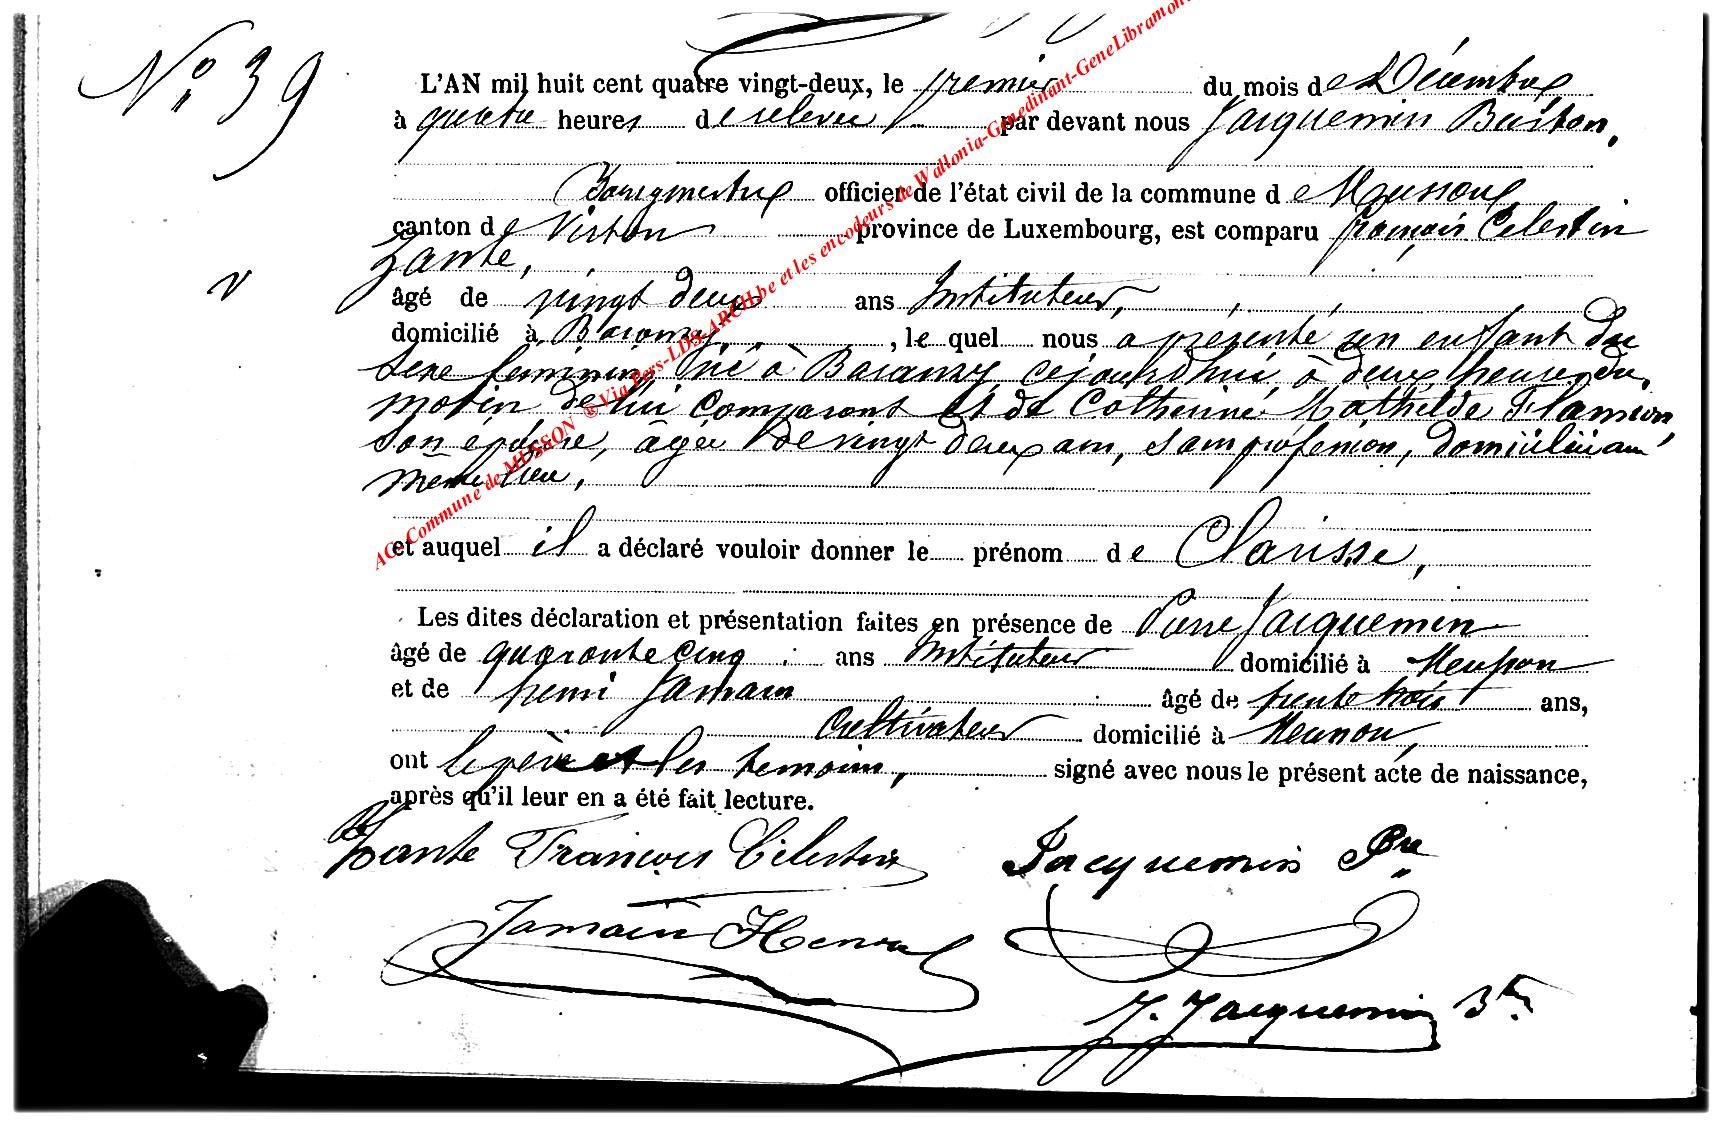 N° 39
L'AN mil huit cent quatre vingt-deux, le premier du mois de Décembre
à quatre heures de relevée par devant nous Jacquemin Baston,
Bourgmestre officier de l'état civil de la commune de Musson
canton de Virton province de Luxembourg, est comparu françois Celestin
Zante,
âgé de vingt deux ans Instituteur,
domicilié à Baranzy, le quel nous a présenté un enfant du
sexe feminin, né à Baranzy, cejourd'hui à deux heures du
matin de lui comparant et de Catherine Mathilde Flamion,
son épouse, âgée de vingt deux ans, sans profession, domiciliée au
même lieu,
et auquel il a déclaré vouloir donner le prénom de Clarisse,
Les dites déclaration et présentation faites en présence de Pierre Jacquemin
âgé de quarante cinq ans Instituteur domicilié à Musson
et de henri Jamain âgé de trente trois ans,
Cultivateur domicilié à Musson,
ont le père et les temoins, signé avec nous le présent acte de naissance,
après qu'il leur en a été fait lecture.
Zante François Célestin Jacquemin Pre
Jamain Henri
J. Jacquemin Btn
AC-Commune de MUSSON ® Via Pers-LDS-ARCH.be et les encodeurs de Wallonia-Genedinant-GeneLibramon